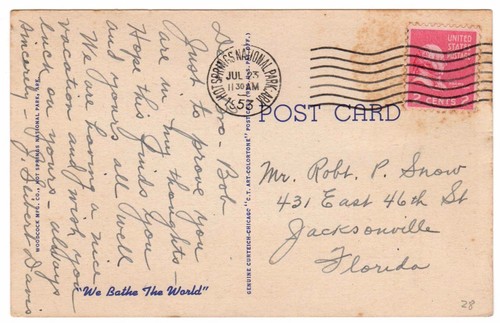 Dear Bro - Bob
Just to prove you
are in my thoughts -
Hope this finds you
and yours all well
We are having a nice
vacation and wish you
luck on yours - always
Sincerely - J. Hubert Davis
WOODCOCK MFG. CO., HOT SPRINGS NATIONAL PARK, ARK.
"We Bathe The World"
GENUINE CURTEICH-CHICAGO "C.T. ART-COLORTONE" POST
HOT SPRINGS NATIONAL PARK, ARK.
JUL 23
11 30 AM
1953
UNITED
STATES
POSTAGE
2 CENTS 2
POST CARD
Mr. Robt. P. Snow
431 East 46th St
Jacksonville
Florida
28